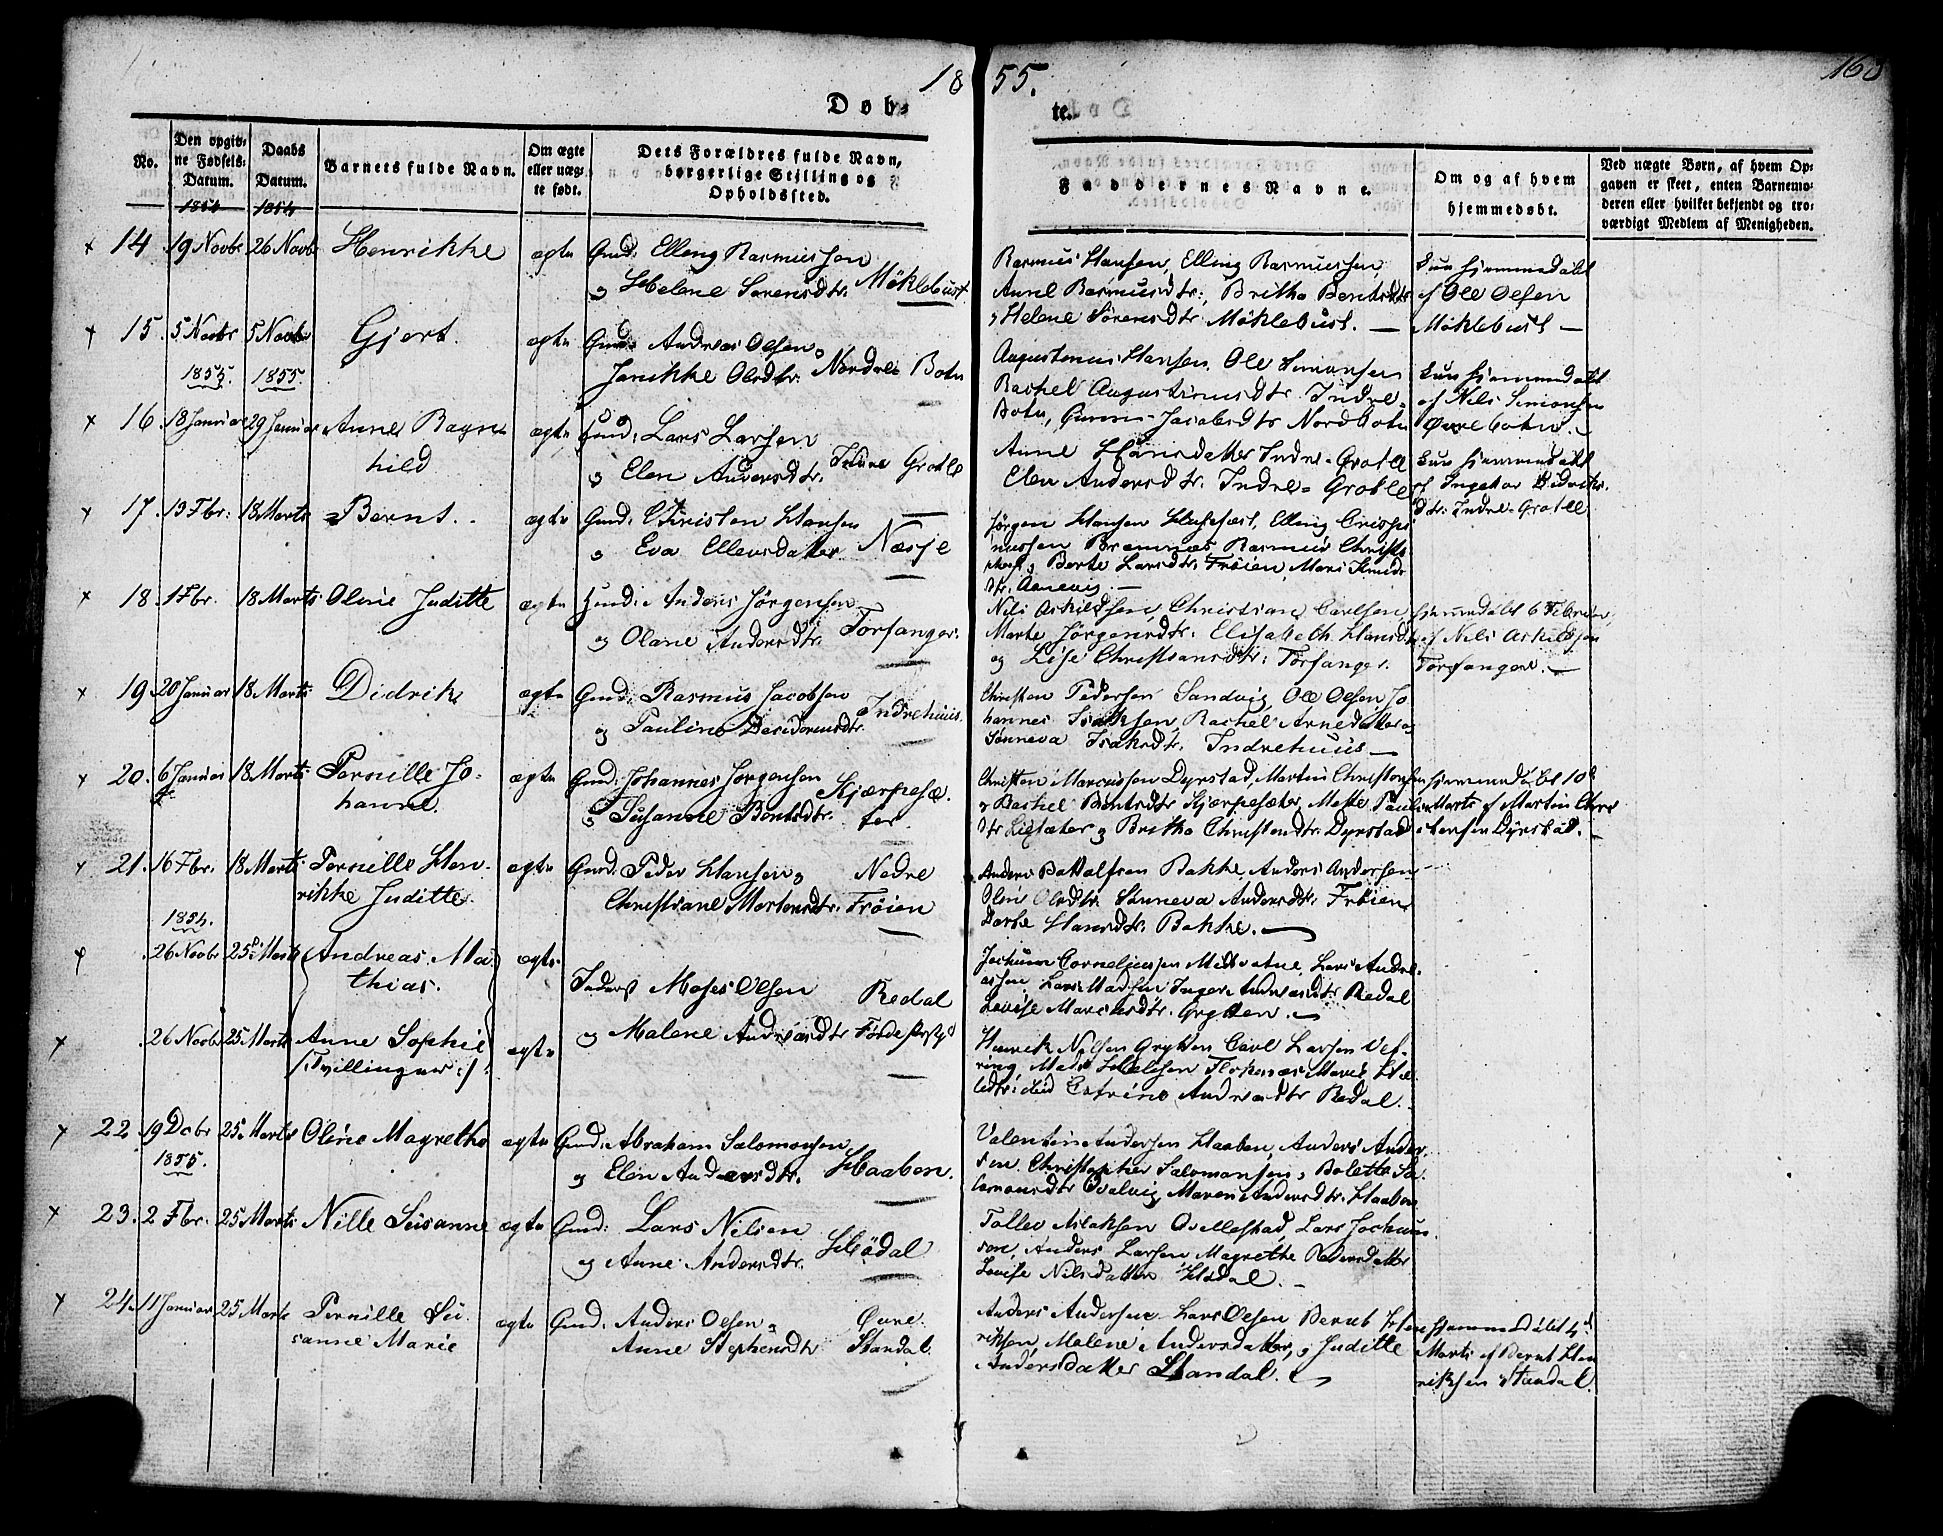 18 55. 163
Døb- te.
No.
Den opgiv-
ne Fødsels-
Datum.
Daabs
Datum.
Barnets fulde Navn.
Om ægte
eller uæg-
te født.
Dets Forældres fulde Navn,
borgerlige Stilling og
Opholdssted.
Faddernes Navne.
Om og af hvem
hjemmedøbt.
Ved uægte Børn, af hvem Op-
gaven er skeet, enten Barnemo-
deren eller hvilket bekjendt og tro-
værdigt Medlem af Menigheden.
1854 1854
14 19 Novbr 26 Novbr Henrikke ægte Gmd: Elling Rasmussen
og Helene Sørensdtr. Møklebust
Rasmus Hansen, Elling Rasmussen,
Anne Rasmusdtr:, Britha Bentsdtr
og Helene Sørensdtr Møklebust. —
hjemmedøbt
af Ole Olsen
Møklebust —
15. 5 Novbr 5 Novbr Gjert. ægte Gmd: Andreas Olsen og
Janikke Olsdtr: Nordre Botn
Hansen, Ole Simonsen
Rachel Augustinusdtr Indre-
Botn, Jacobsdtr Nordbotn
hjemmedøbt
af Nils Simonsen
Øvrebotn. —
1855. 1855.
16 18 Januar 29 Januar Anne Ragn-
hild
ægte Gmd: Lars Larsen
og Elen Andersdtr. Indre Grotle
Anne Hansdatter Indre-Grotle
Elen Andersdtr. Indre-Grotle
hjemmedøbt
af
dtr. Indre-Grotle
17. 13 Fbr: 18 Marts Bernt. ægte Gmd: Christen Hansen
og Eva Ellensdatter Næsje
Jørgen Hansen Husefæst, Elling Crispi-
nussen Bremnæs Rasmus Christo-
og Berte Larsdtr: Frøien, Mari
dtr.
18. 1 Fbr. 18 Marts Oline Juditte ægte Gmd: Anders Jørgensen
og Olane Andersdtr. Torsanger.
Nils Askildsen, Christian Carlsen,
Marte Jørgensdtr. Elisabeth Hansdtr
og Lise Christiansdtr: Torsanger.
hjemmedøbt 6 Februar
af Nils Askildsen
Torsanger. —
19. 20 Januar 18 Marts Didrik ægte Gmd: Rasmus Jacobsen
og Pauline Desideriusdtr. Indrehuus.
Christen Pedersen Sandvig, Ole Olsen, Jo-
hannes Isaksen, Rachel Arnedatter og
Sønneva Isaksdtr. Indrehuus —
20. 6 Januar 18 Marts Pernille Jo-
hanne.
ægte Gmd: Johannes Jørgensen
og Susanne Bentsdtr. Kjærpesæ-
ter.
Christen Marcussen Dyrstad, Martin Christensen
og Rachel Bentsdtr Kjærpesæter, Mette
dtr og Britha Christendtr: Dyrstad
hjemmedøbt 10de
Marts af Martin Chri-
stensen Dyrstad. —
21. 16 Fbr. 18 Marts Pernille Hen-
rikke Juditte.
ægte Gmd: Peder Hansen og
Christiane Mortensdtr: Nedre
Frøien
Anders Bakke, Anders Andersen
Olsdtr. Sønneva Andersdtr: Frøien
Dorte Hansdtr: Bakke. —
1854.
26 Novbr 25 Marts Andreas Ma-
thias.
ægte
Inderst Moses Olsen Redal
og Malene Andreasdtr Førde
Jochum Corneliussen Lars Andre-
assen, Lars Madsen Inger Andreasdtr: Redal
Lovise Grytten. —
26 Novbr 25 Marts Anne Sophie
/: Tvillinger :/
ægte
Henrik Nilsen Grytten Carl Larsen Vef-
ring, Mads
Catrine Andreasdtr Redal.
22. 19 Dcbr 25 Marts Oline Magrethe ægte Gmd: Abraham Salomonsen
og Elen Andersdtr. Haaben.
Valentin Andersen Haaben, Anders Ander-
sen. Christopher Salomonsen, Bolette Sa-
lomonsdtr Qvalvig, Maren Andersdtr. Haaben
1855.
23. 2 Fbr. 25 Marts Nille Susanne ægte Gmd: Lars Nilsen
og Anne Andersdtr. Hødal
Tollev Aslaksen Qvellestad, Lars Jochum-
sen, Anders Larsen Magrethe Pedersdatter
Lovise Nilsdatter Hødal. —
24. 11 Januar 25 Marts Pernille Su-
sanne Marie
ægte Gmd: Anders Olsen og
Anne Stephensdtr Øvre
Standal.
Anders Andersen Lars Olsen Bernt Hen-
riksen, Malene Andersdatter, og Juditte
Andersdatter Standal. —
hjemmedøbt 4de
Marts af Bernt Hen-
riksen Standal.